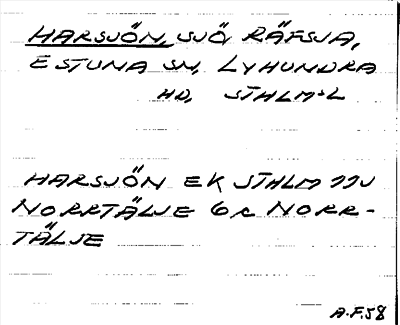 HARSJÖN, SJÖ RÄFSJA,
ESTUNA SN, LYHUNDRA
HD, STHLMSL
HARSJÖN EK STHLM 77J
NORRTÄLJE 6c NORR-
TÄLJE
A.F.58